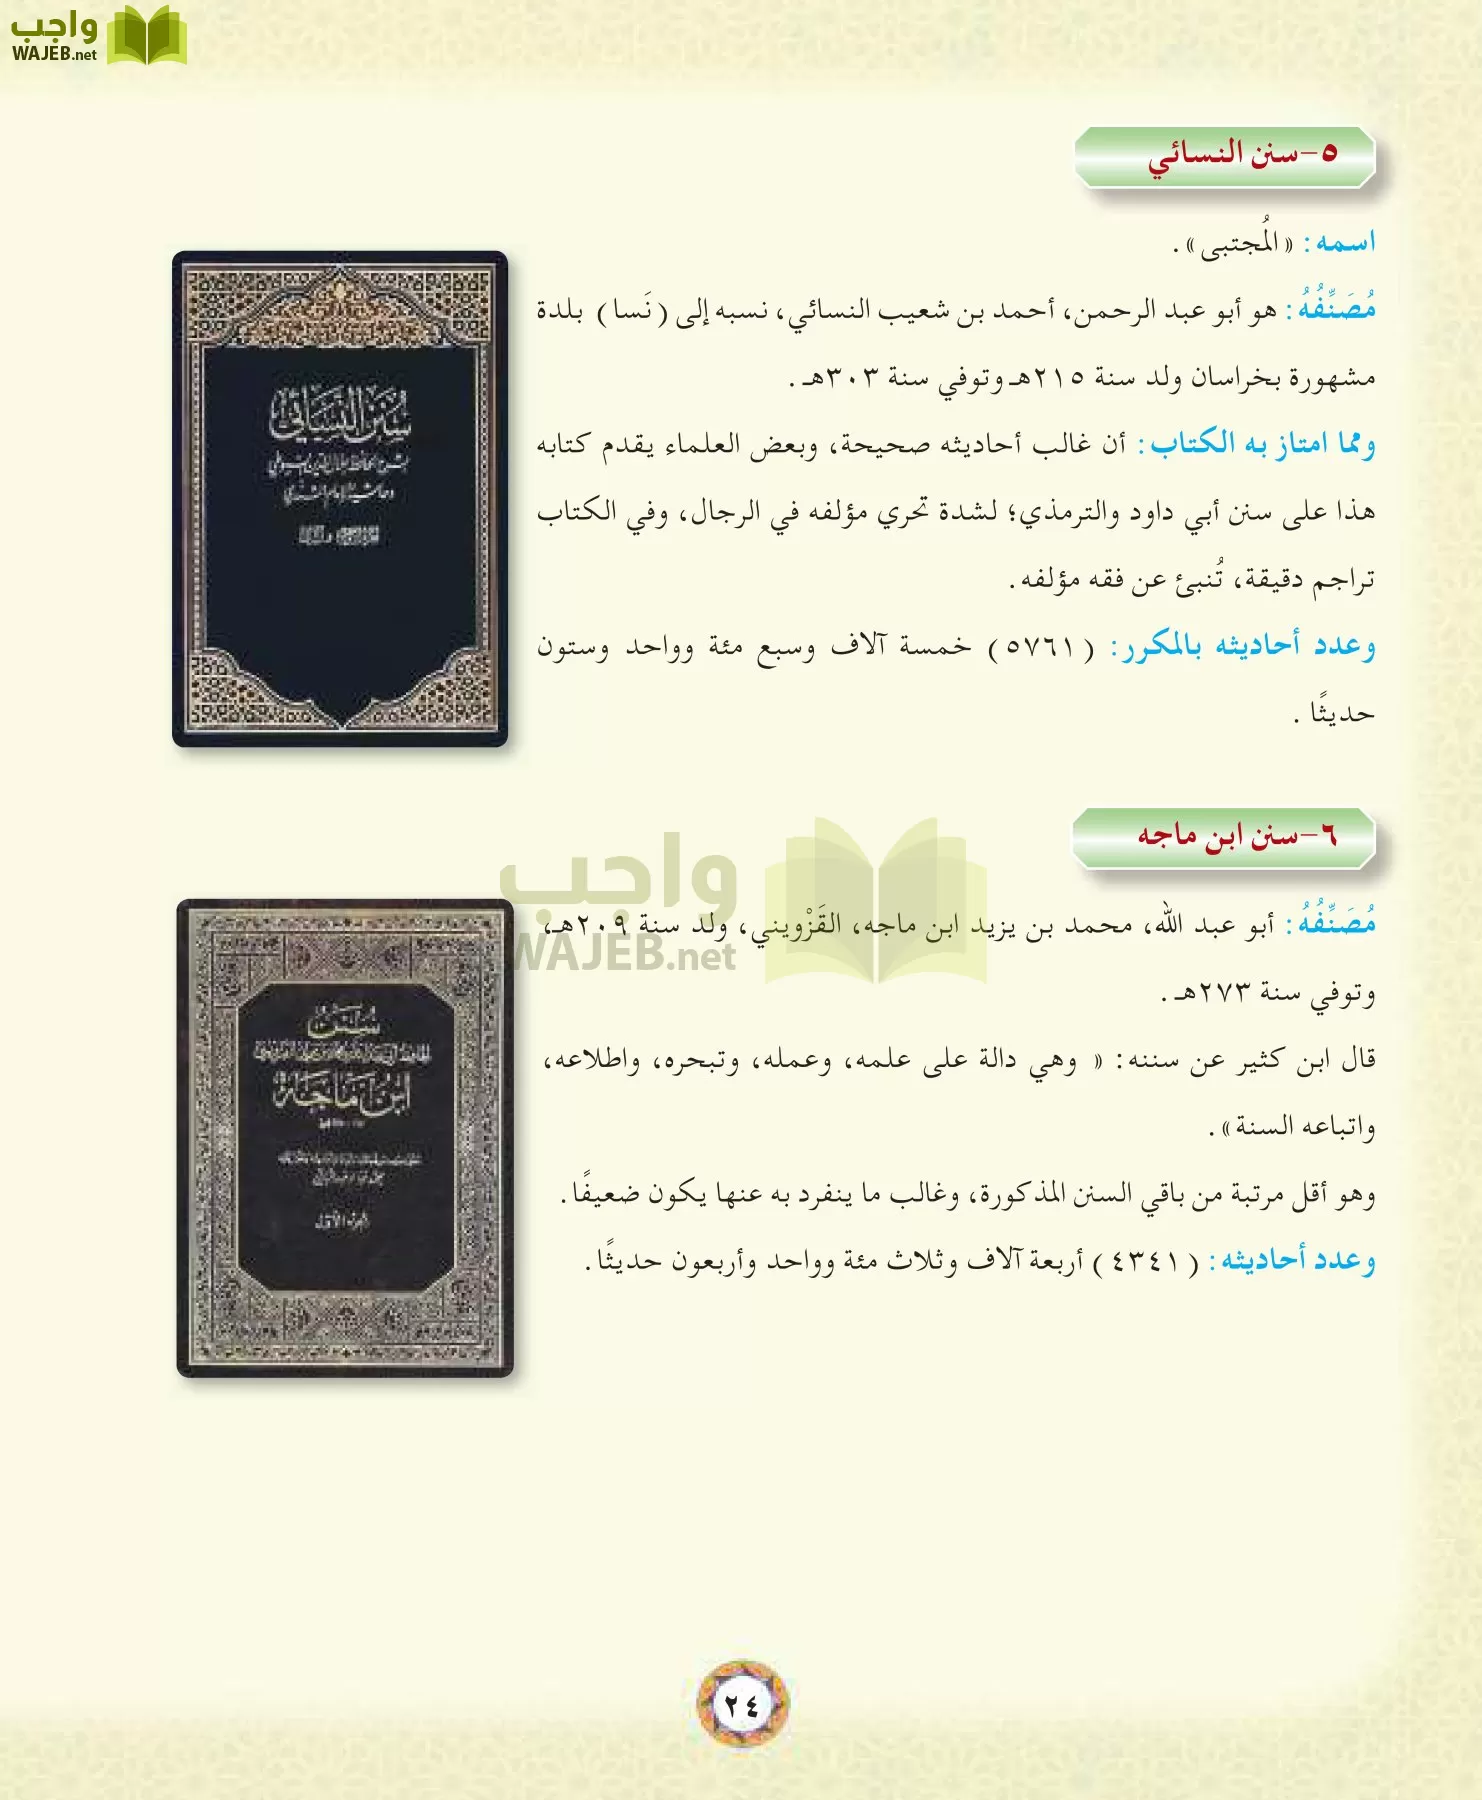 واجب
WAJEB.net
٥-سنن النسائي
اسمه: «المُجتبى».
مُصَنِّفُهُ: هو أبو عبد الرحمن، أحمد بن شعيب النسائي، نسبه إلى (نَسا) بلدة
مشهورة بخراسان ولد سنة ٢١٥هـ وتوفي سنة ٣٠٣هـ.
ومما امتاز به الكتاب: أن غالب أحاديثه صحيحة، وبعض العلماء يقدم كتابه
هذا على سنن أبي داود والترمذي؛ لشدة تحري مؤلفه في الرجال، وفي الكتاب
تراجم دقيقة، تُنبئ عن فقه مؤلفه.
وعدد أحاديثه بالمكرر: (٥٧٦١) خمسة آلاف وسبع مئة وواحد وستون
حديثًا.
سنن النسائي
٦-سنن ابن ماجه
واجب
WAJEB.net
مُصَنِّفُهُ: أبو عبد الله، محمد بن يزيد ابن ماجه، القَزْويني، ولد سنة ٢٠٩هـ،
وتوفي سنة ٢٧٣هـ.
قال ابن كثير عن سننه: « وهي دالة على علمه، وعمله، وتبحره، واطلاعه،
واتباعه السنة».
وهو أقل مرتبة من باقي السنن المذكورة، وغالب ما ينفرد به عنها يكون ضعيفًا.
وعدد أحاديثه: (٤٣٤١) أربعة آلاف وثلاث مئة وواحد وأربعون حديثًا.
سنن
ابن ماجه
الجزء الأول
٢٤